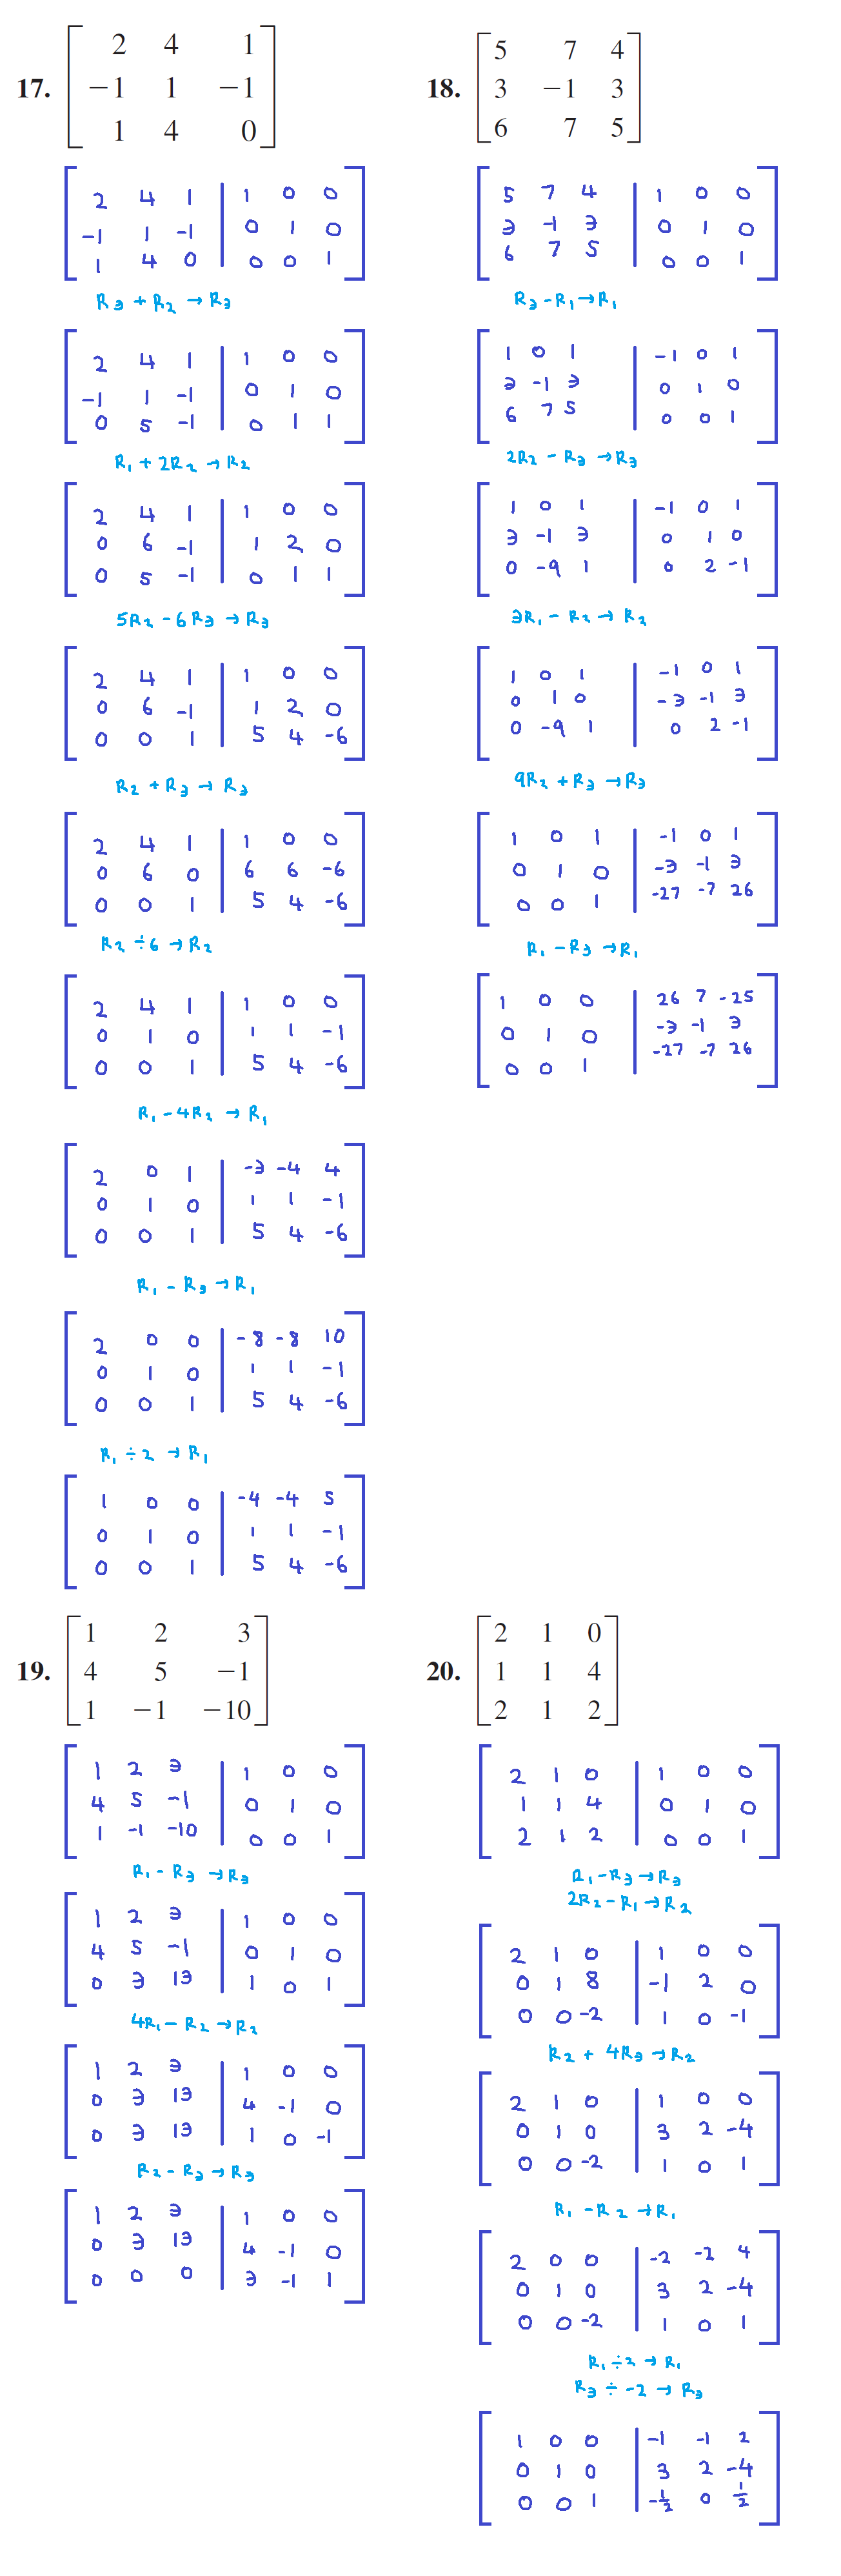 17.
2 4 1
−1 1 −1
1 4 0
2 4 1 | 1 0 0
-1 1 -1 | 0 1 0
1 4 0 | 0 0 1
R3 + R2 → R3
2 4 1 | 1 0 0
-1 1 -1 | 0 1 0
0 5 -1 | 0 1 1
R1 + 2R2 → R2
2 4 1 | 1 0 0
0 6 -1 | 1 2 0
0 5 -1 | 0 1 1
5R2 - 6R3 → R3
2 4 1 | 1 0 0
0 6 -1 | 1 2 0
0 0 1 | 5 4 -6
R2 + R3 → R3
2 4 1 | 1 0 0
0 6 0 | 6 6 -6
0 0 1 | 5 4 -6
R2 ÷ 6 → R2
2 4 1 | 1 0 0
0 1 0 | 1 1 -1
0 0 1 | 5 4 -6
R1 - 4R2 → R1
2 0 1 | -3 -4 4
0 1 0 | 1 1 -1
0 0 1 | 5 4 -6
R1 - R3 → R1
2 0 0 | -8 -8 10
0 1 0 | 1 1 -1
0 0 1 | 5 4 -6
R1 ÷ 2 → R1
1 0 0 | -4 -4 5
0 1 0 | 1 1 -1
0 0 1 | 5 4 -6
18.
5 7 4
3 −1 3
6 7 5
5 7 4 | 1 0 0
3 -1 3 | 0 1 0
6 7 5 | 0 0 1
R3 - R1 → R1
1 0 1 | -1 0 1
3 -1 3 | 0 1 0
6 7 5 | 0 0 1
2R2 - R3 → R3
1 0 1 | -1 0 1
3 -1 3 | 0 1 0
0 -9 1 | 0 2 -1
3R1 - R2 → R2
1 0 1 | -1 0 1
0 1 0 | -3 -1 3
0 -9 1 | 0 2 -1
9R2 + R3 → R3
1 0 1 | -1 0 1
0 1 0 | -3 -1 3
0 0 1 | -27 -7 26
R1 - R3 → R1
1 0 0 | 26 7 -25
0 1 0 | -3 -1 3
0 0 1 | -27 -7 26
19.
1 2 3
4 5 −1
1 −1 −10
1 2 3 | 1 0 0
4 5 -1 | 0 1 0
1 -1 -10 | 0 0 1
R1 - R3 → R3
1 2 3 | 1 0 0
4 5 -1 | 0 1 0
0 3 13 | 1 0 1
4R1 - R2 → R2
1 2 3 | 1 0 0
0 3 13 | 4 -1 0
0 3 13 | 1 0 -1
R2 - R3 → R3
1 2 3 | 1 0 0
0 3 13 | 4 -1 0
0 0 0 | 3 -1 1
20.
2 1 0
1 1 4
2 1 2
2 1 0 | 1 0 0
1 1 4 | 0 1 0
2 1 2 | 0 0 1
R1 - R3 → R3
2R2 - R1 → R2
2 1 0 | 1 0 0
0 1 8 | -1 2 0
0 0 -2 | 1 0 -1
R2 + 4R3 → R2
2 1 0 | 1 0 0
0 1 0 | 3 2 -4
0 0 -2 | 1 0 1
R1 - R2 → R1
2 0 0 | -2 -2 4
0 1 0 | 3 2 -4
0 0 -2 | 1 0 1
R1 ÷ 2 → R1
R3 ÷ -2 → R3
1 0 0 | -1 -1 2
0 1 0 | 3 2 -4
0 0 1 | -1/2 0 1/2